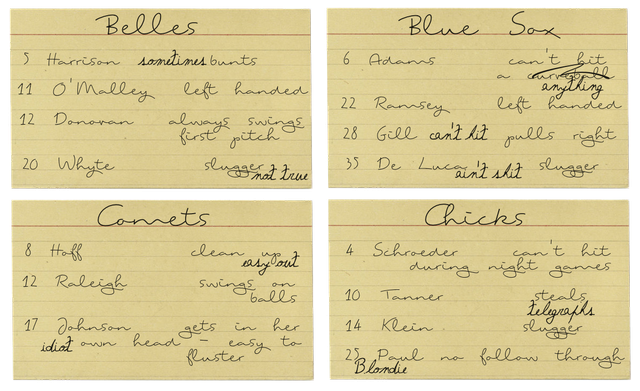 Belles
5 Harrison sometimes bunts
11 O'Malley left handed
12 Donovan always swings
first pitch
20 Whyte slugger
not true
Blue Sox
6 Adams can't hit
a curveball
anything
22 Ramsey left handed
28 Gill can't hit pulls right
35 De Luca slugger
ain't shit
Comets
8 Hoff clean up
easy out
12 Raleigh swings on
balls
17 Johnson gets in her
idiot own head – easy to
fluster
Chicks
4 Schroeder can't hit
during night games
10 Tanner steals
telegraphs
14 Klein slugger
25 Paul no follow through
Blondie